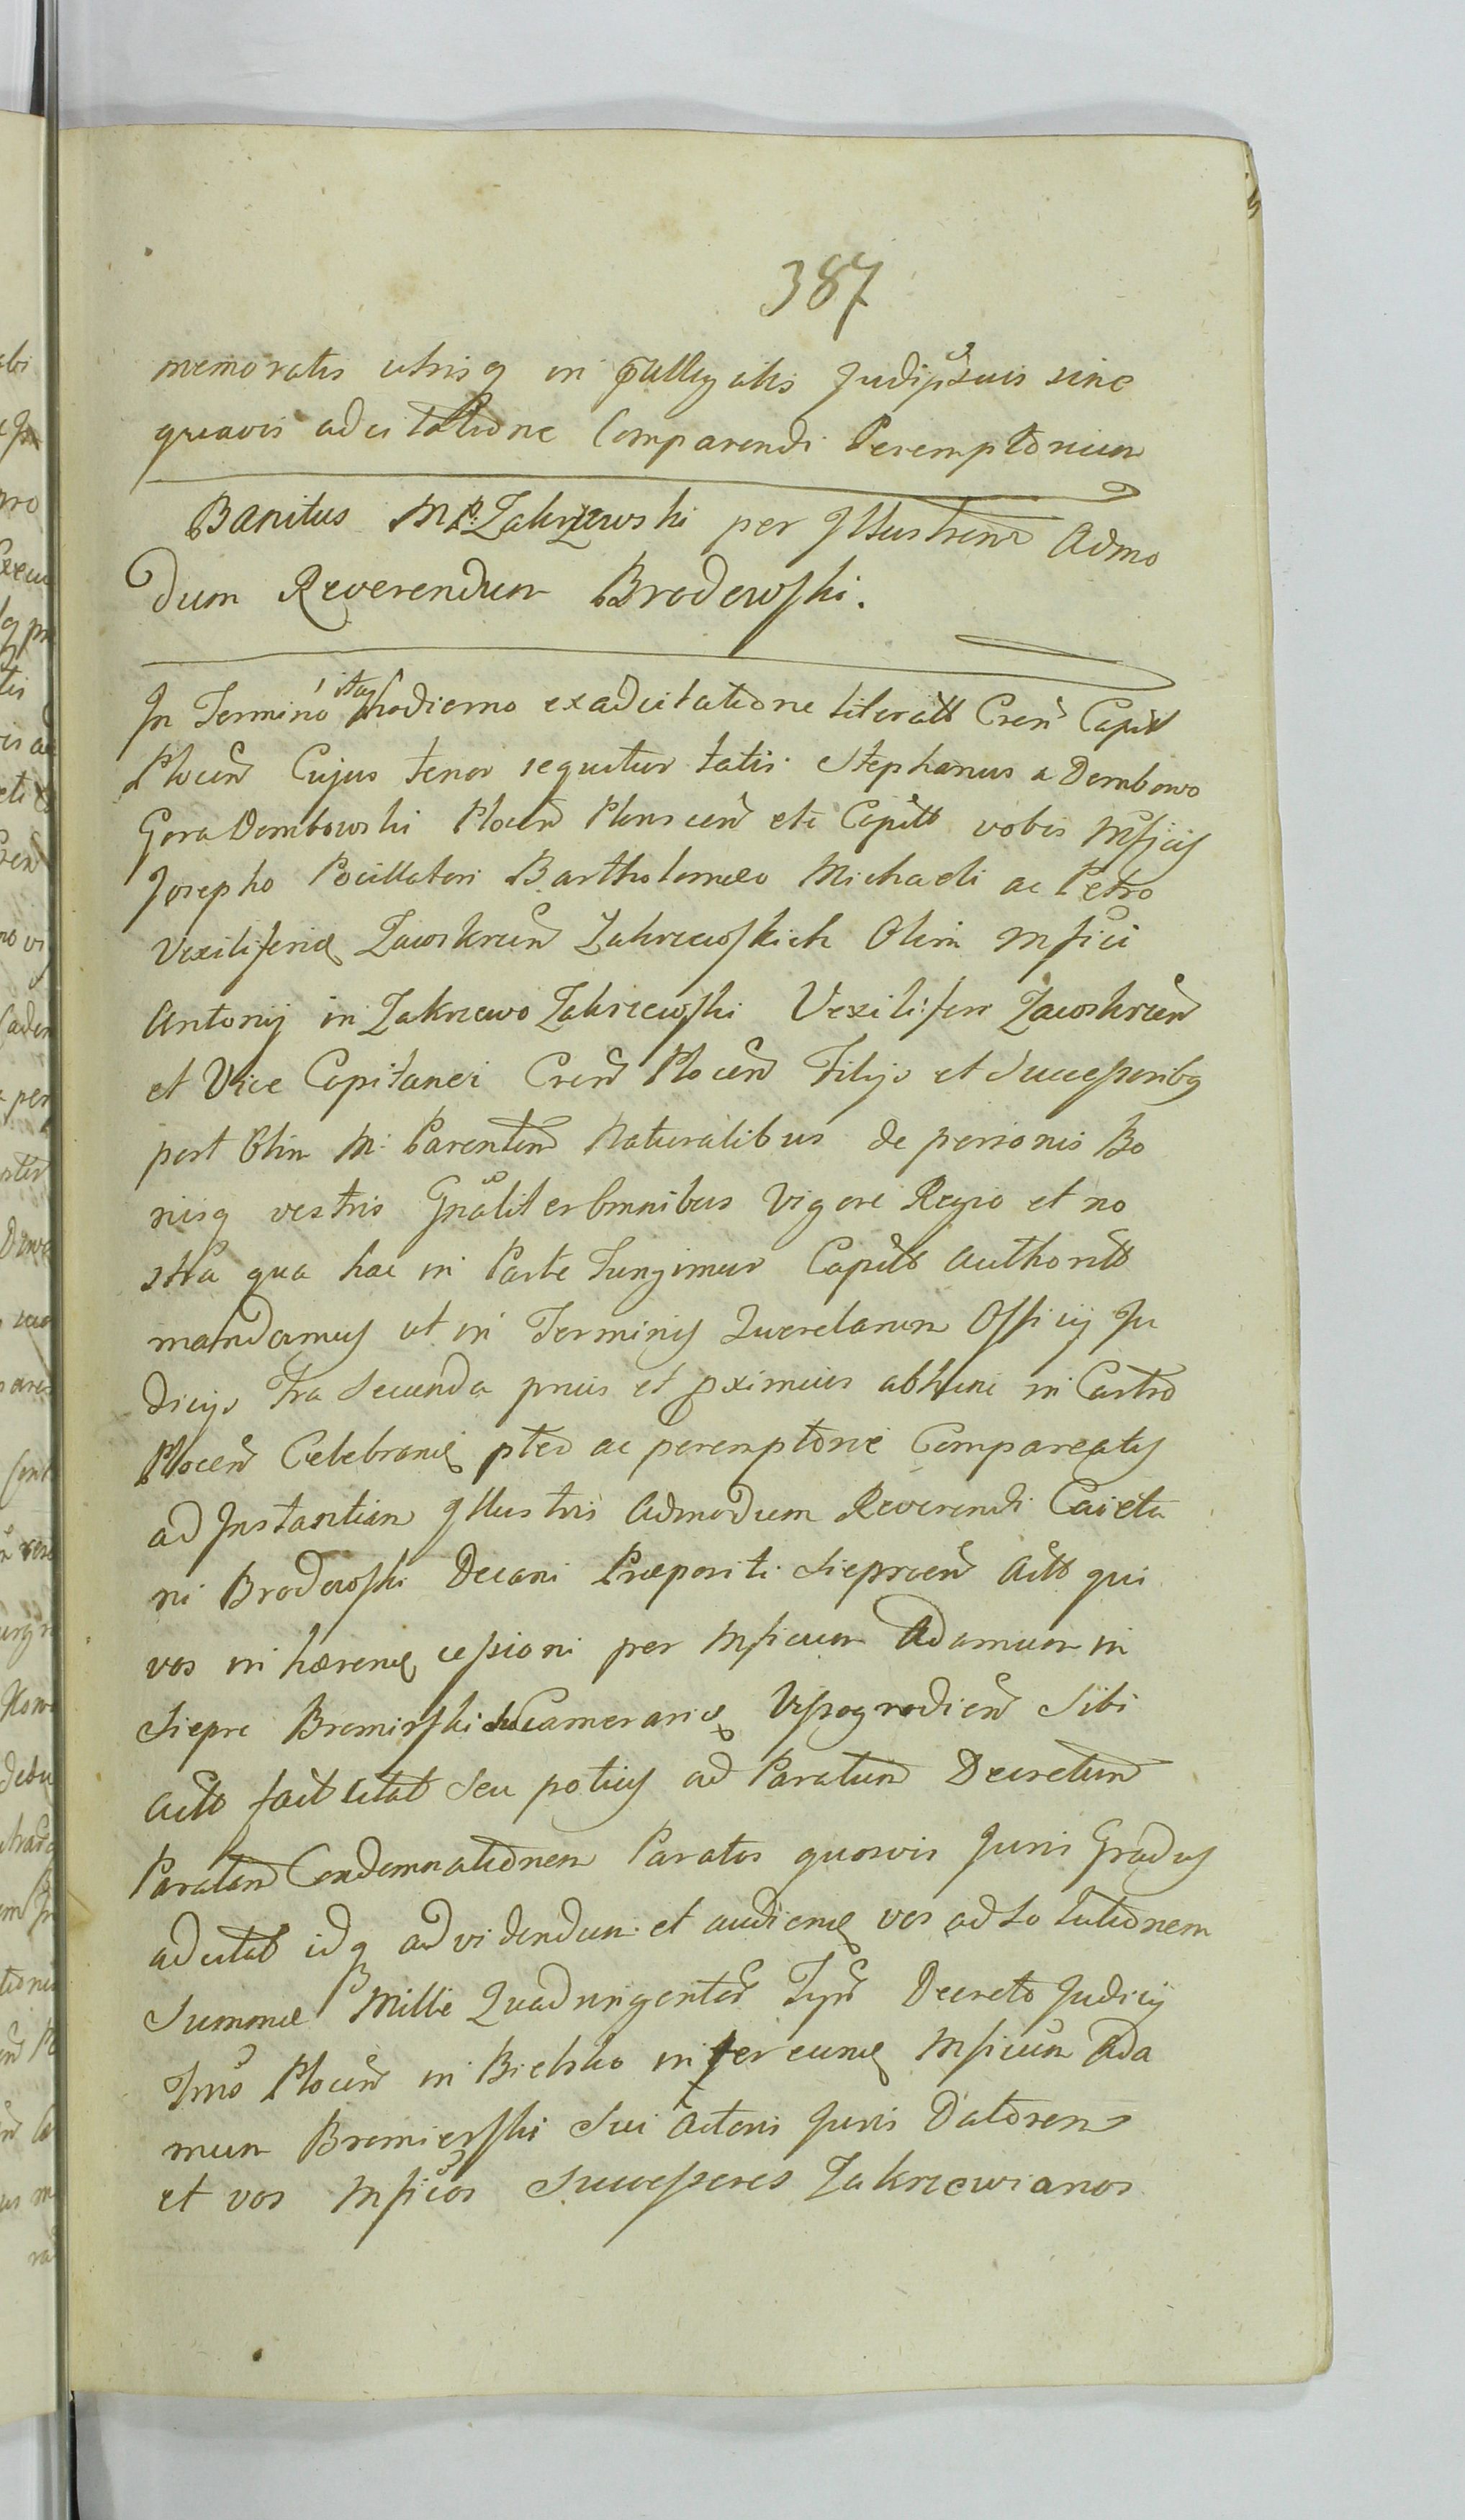 387
memoratis utrisq in Judiciis suis sine
quavis adcitatione Comparendi Peremptorium
Banitus M. P. Zakrzewski per Illustrem Admo
dum Reverendum Brodowski.
In Termino hodierno ex adcitatione literali Cren Capitt
Plocen Cujus tenor sequitur talis Stephanus a Dembowo
Gora Dembowski Plocen Plonscen etc Capitt vobis Mficis
Josepho Pocillatori Bartholomeo Michaeli ac Petro
Vexiliferidę Zawskrzen Zakrzewskich Olim Mfici
Antonij in Zakrzewo Zakrzewski Vexiliferi Zawskrzen
et Vice Capitanei Cren Plocen Filijs et Successoribq
post Olim M: Parentem Naturalibus de personis Bo
nisq vestris Gnaliter omnibus Vigore Regia et no
stra qua hac in Parte fungimur Capitt Authoritt
mandamus ut in Terminis Querelarum Officij Ju
dicijs Fra Secunda prius et pximius abhinc in Castro
Plocen Celebrandę pteo ac peremptorie Compareatis
ad Instantiam Illustris Admodum Reverendi Caieta
ni Brodowski Decani Præpositi Sieprcen Actt qui
vos in hærendę cessioni per Mficum Adamum in
Sieprc Bromirski Camerarię Vyszogrodien Sibi
Actt fact citat Seu potius ad Paratum Decretum
Paratam Condemnationem Paratos quosvis Juris Gradus
adcitat idq ad videndum et audiendę vos ad solutionem
Summæ Mille Quadringentor Tynf Decreto Judicij
Trris Plocen in Bielsko inter eundę Mficum Ada
mum Bromierski Sui Actoris Juris Datorem
et vos Mficos Successores Zakrzewianos